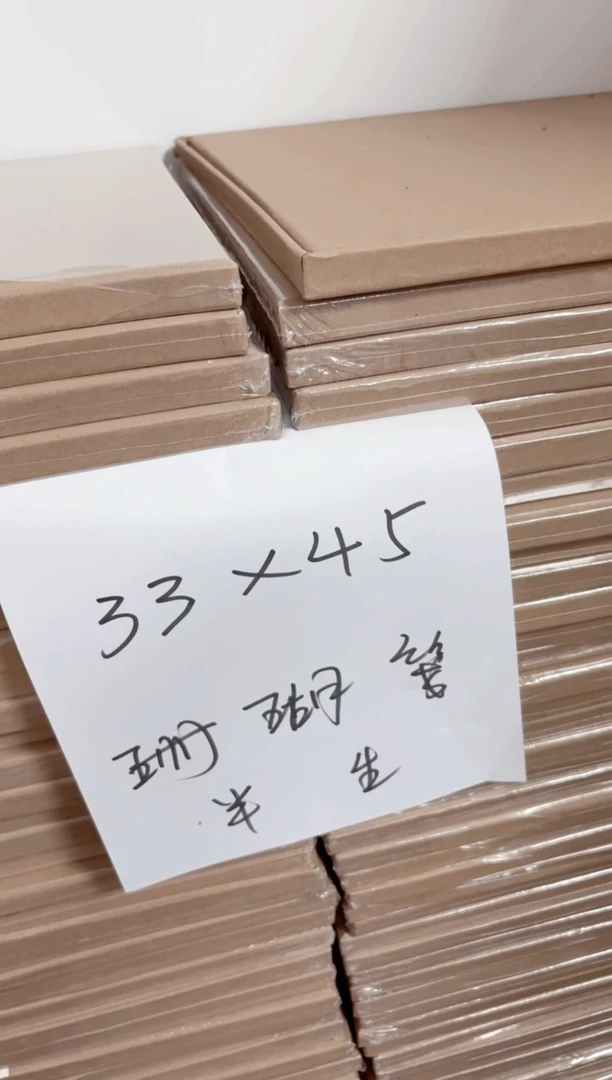 33×45
珊瑚笺
半生